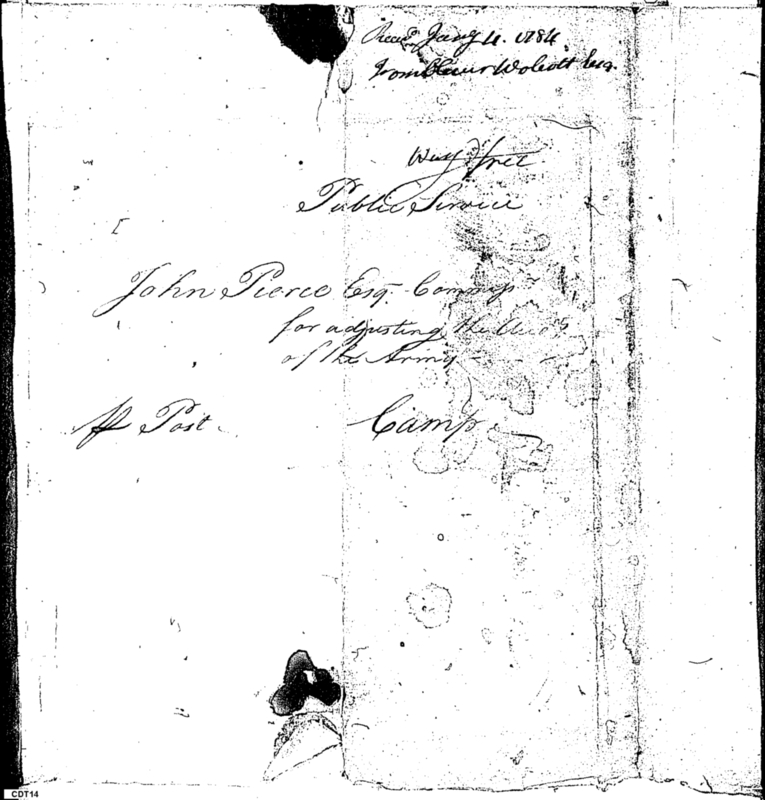 Recd Jany 4. 1784
from Oliver Wolcott Esq.
Way free
Public Service
John Pierce Esq. Commr
for adjusting the Accts
of the Army
Pr Post
Camp.
CDT14